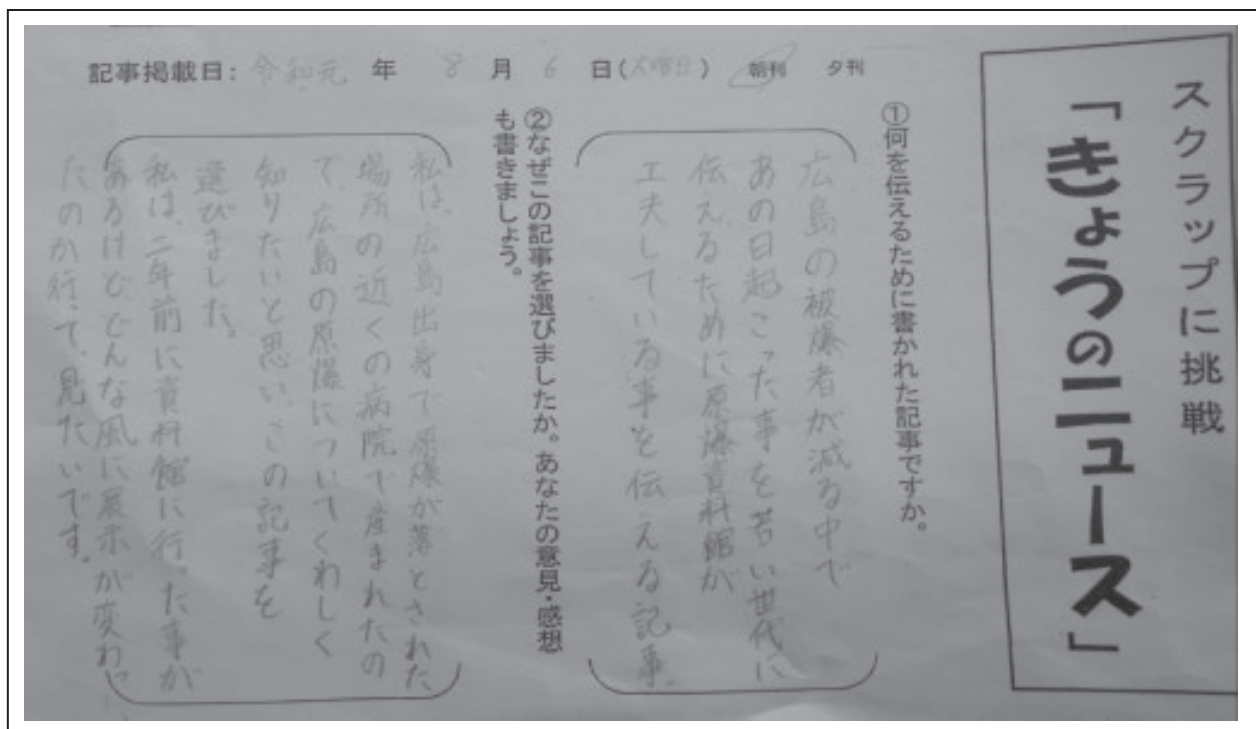 スクラップに挑戦
「きょうのニュース」
記事掲載日：令和元年 8月 6日（火曜日） 朝刊 夕刊
①何を伝えるために書かれた記事ですか。
広島の被爆者が減る中で
あの日起こった事を若い世代に
伝えるために原爆資料館が
工夫している事を伝える記事。
②なぜこの記事を選びましたか。あなたの意見・感想
も書きましょう。
私は、広島出身で原爆が落とされた
場所の近くの病院で産まれたの
で、広島の原爆についてくわしく
知りたいと思い、この記事を
選びました。
私は、二年前に資料館に行った事が
あるけど、どんな風に展示が変わっ
たのか行って、見たいです。